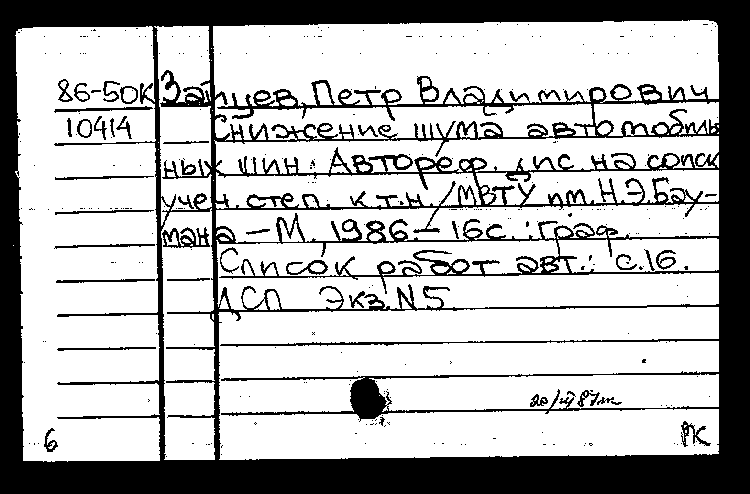 86-50К Зайцев, Петр Владимирович
10414 Снижение шума автомобиль
ных шин: Автореф. дис. на соиск
учен. степ. к.т.н. /МВТУ им. Н.Э.Бау-
мана – М., 1986. – 16с. : граф.
Список работ авт.: с.16.
ДСП Экз. N5
6 РК